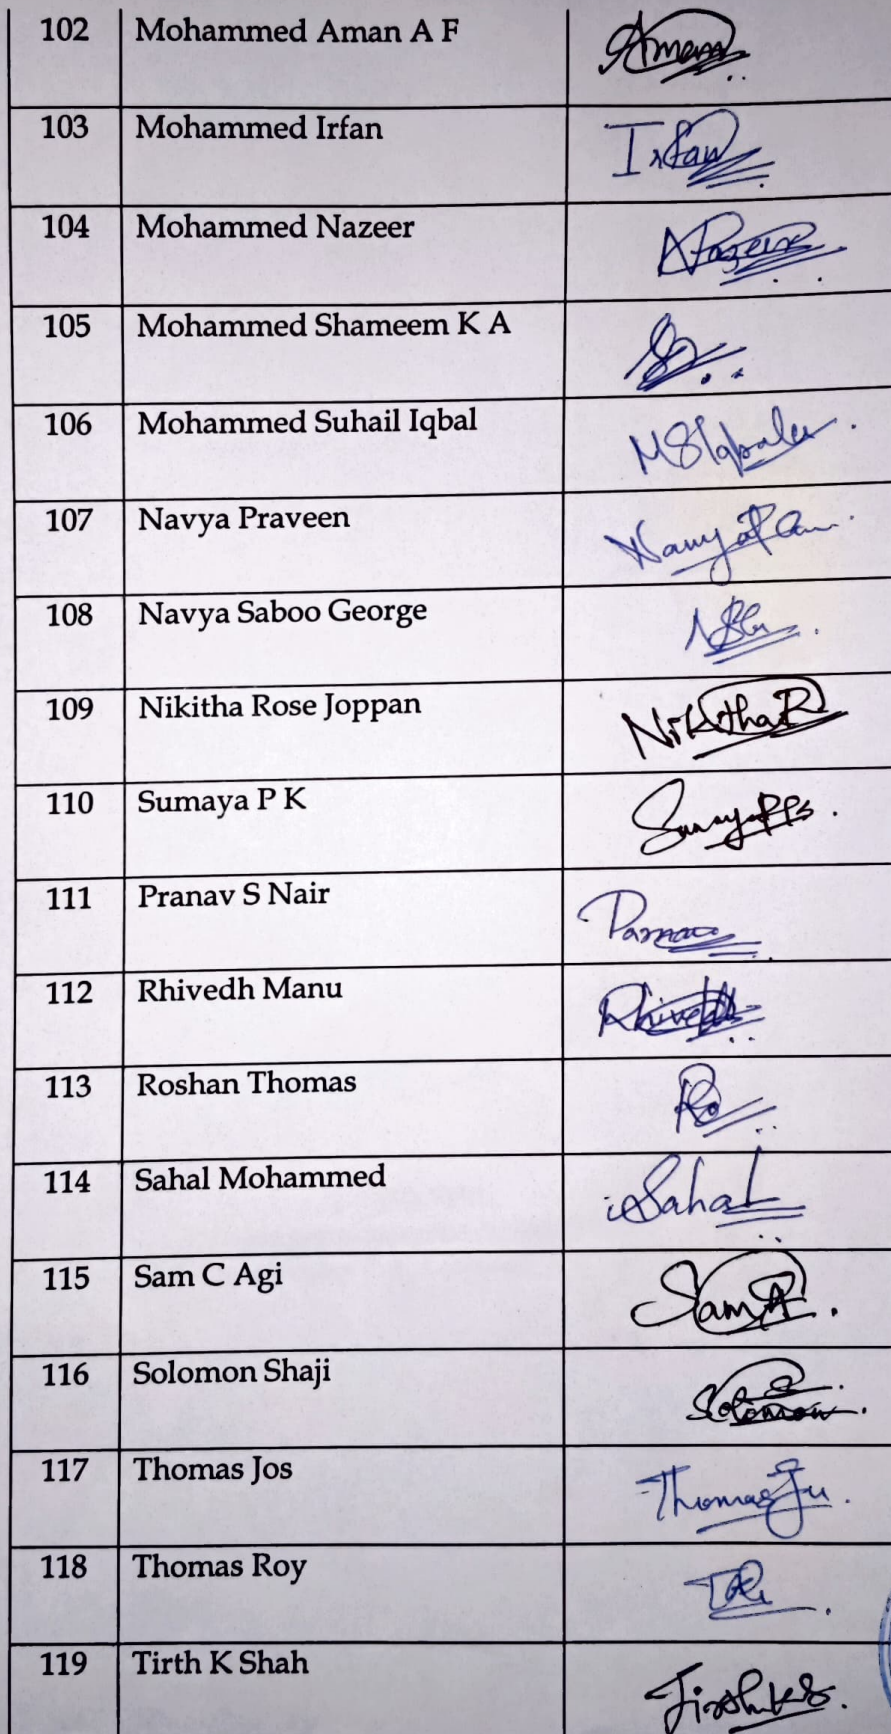 102 Mohammed Aman A F Aman
103 Mohammed Irfan Irfan
104 Mohammed Nazeer Nazeer
105 Mohammed Shameem K A
106 Mohammed Suhail Iqbal
107 Navya Praveen
108 Navya Saboo George
109 Nikitha Rose Joppan Nikitha R
110 Sumaya P K
111 Pranav S Nair
112 Rhivedh Manu Rhivedh
113 Roshan Thomas
114 Sahal Mohammed Sahal
115 Sam C Agi Sam A
116 Solomon Shaji Solomon
117 Thomas Jos Thomas
118 Thomas Roy
119 Tirth K Shah